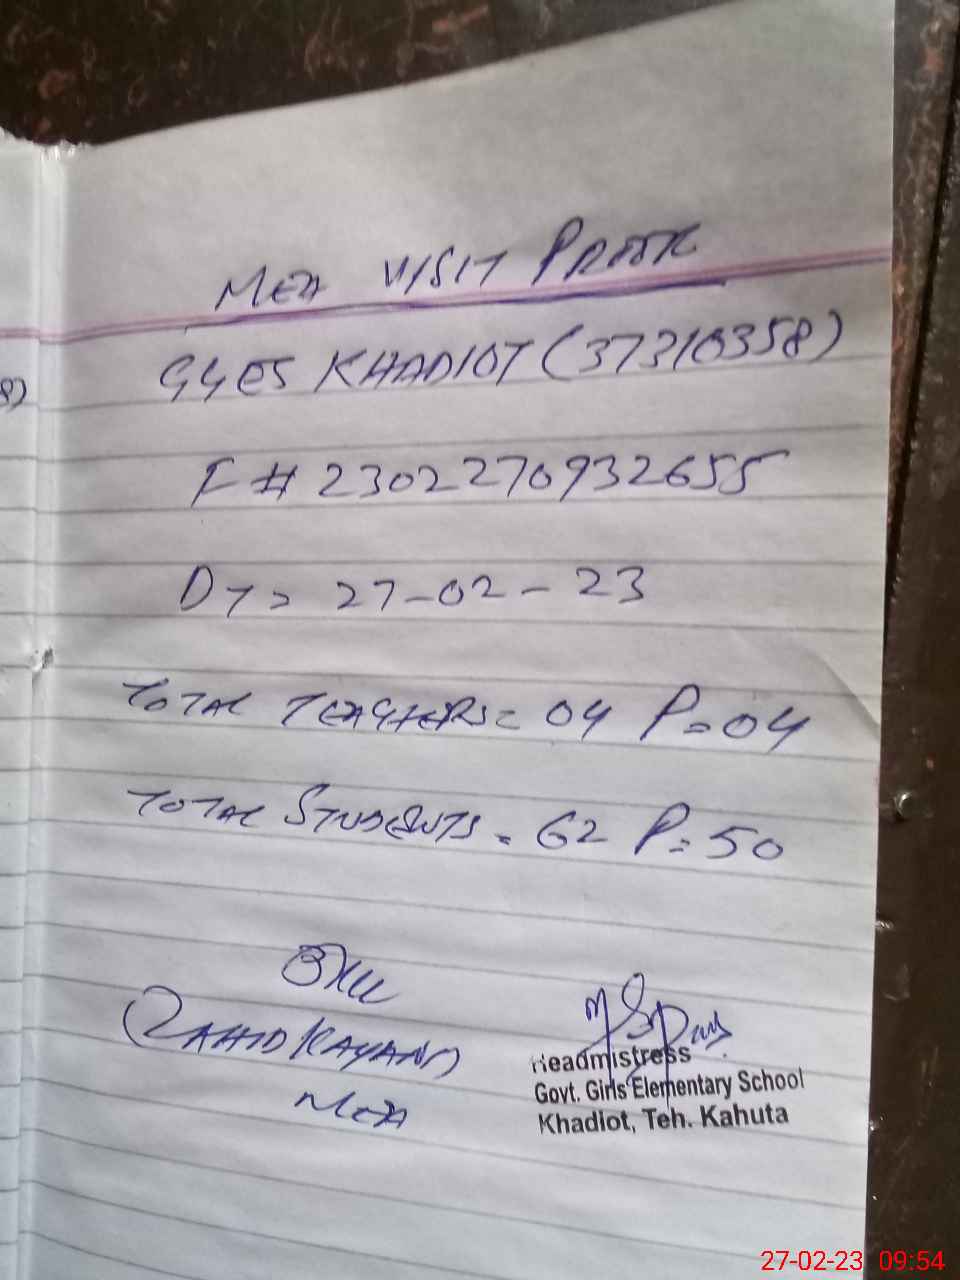 MEA VISIT PROOF
GGES KHADIOT (37310358)
F # 2302270932655
DT = 27-02-23
TOTAL TEACHERS = 04 P = 04
TOTAL STUDENTS = 62 P = 50
8)
ZAHID KAYANI
MEA
Headmistress
Govt. Girls Elementary School
Khadiot, Teh. Kahuta
27-02-23 09:54